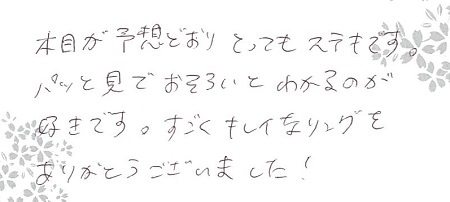 木目が予想どおりとってもステキです。
パッと見でおそろいとわかるのが
好きです。すごくキレイなリングを
ありがとうございました！